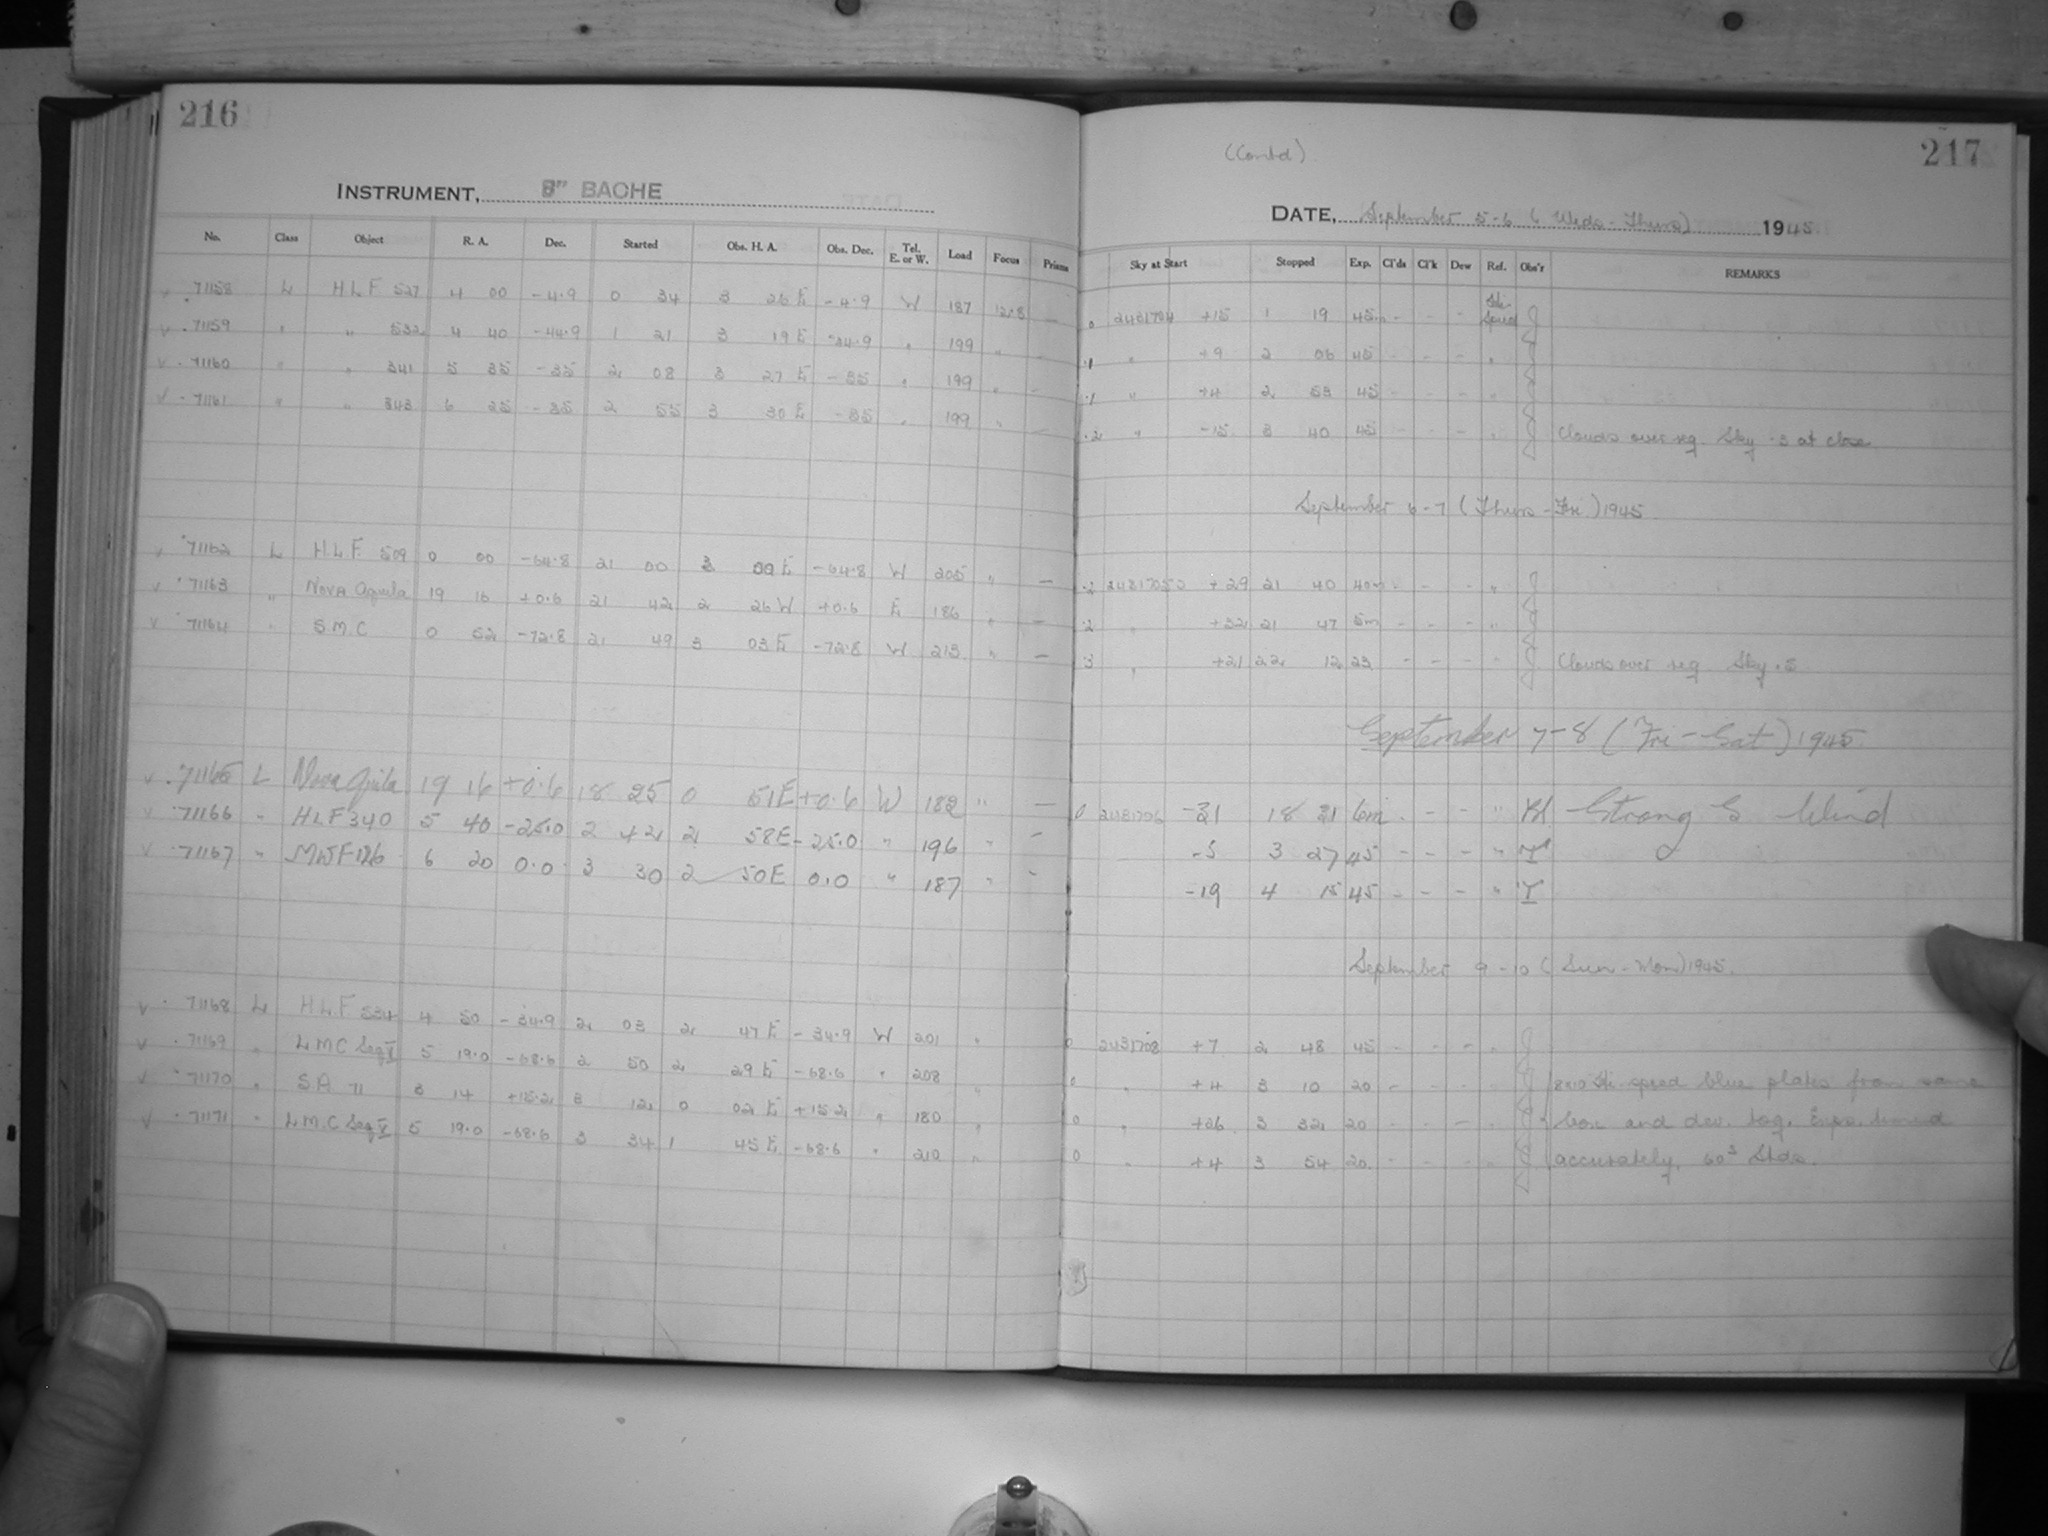 216
INSTRUMENT, 8" BACHE
No. Class Object R. A. Dec. Started Obs. H. A. Obs. Dec. Tel. E. or W. Load Focus Prisms
71158 L H.L.F 527 4 00 -4.9 0 34 3 26 E -4.9 W 187 12.8 —
71159 " " 532 4 40 -44.9 1 21 3 19 E -44.9 " 199 " -
71160 " " 341 5 35 -35 2 08 3 27 E -35 " 199 " -
71161 " " 343 6 25 -35 2 55 3 30 E -35 " 199 " —
71162 L H.L.F. 509 0 00 -64.8 21 00 3 00 E -64.8 W 205 " —
71163 " Nova Aquila 19 16 +0.6 21 42 2 26 W +0.6 E 186 " —
71164 " S.M.C 0 52 -72.8 21 49 3 03 E -72.8 W 213 " —
71165 L Nova Aquila 19 16 +0.6 18 25 0 51 E +0.6 W 182 " —
71166 " HLF 340 5 40 -25.0 2 42 2 58E -25.0 " 196 " -
71167 " MWF 126 6 20 0.0 3 30 2 50E 0.0 " 187 " -
71168 L H.L.F 534 4 50 -34.9 2 03 2 47 E -34.9 W 201 "
71169 " L M C Seq V 5 19.0 -68.6 2 50 2 29 E -68.6 " 208
71170 " S.A. 71 3 14 +15.2 3 12 0 02 E +15.2 " 180 "
71171 " L.M.C Seq V 5 19.0 -68.6 3 34 1 45 E -68.6 " 210 "
(Contd) 217
DATE, September 5-6 (Weds-Thurs) 1945
Sky at Start Stopped Exp. Cl'ds Cl'k Dew Ref. Obs'r REMARKS
0 2431704 +15 1 19 45m - - - Hi Speed
.1 " +9 2 06 45 - - - "
.1 " +4 2 53 45 - - - "
.2 " -15 3 40 45 - - - " Clouds over reg. Sky .3 at close
September 6-7 (Thurs-Fri) 1945
.2 2431705 +29 21 40 40m - - - "
.2 " +32 21 47 5m - - - "
.3 " +21 22 12 23 - - - " Clouds over reg. Sky .5
September 7-8 (Fri-Sat) 1945
0 2431706 -31 18 31 6m - - - " Strong S Wind
-5 3 27 45 - - - " T
-19 4 15 45 - - - " T
September 9-10 (Sun-Mon) 1945.
0 2431708 +7 2 48 45 - - - "
0 " +4 3 10 20 - - - 8x10 Hi-speed blue plates from same
0 " +26 3 32 20 - - - box and dev. tog. Expo. timed
0 " +4 3 54 20 - - - accurately. 60³ Stds.